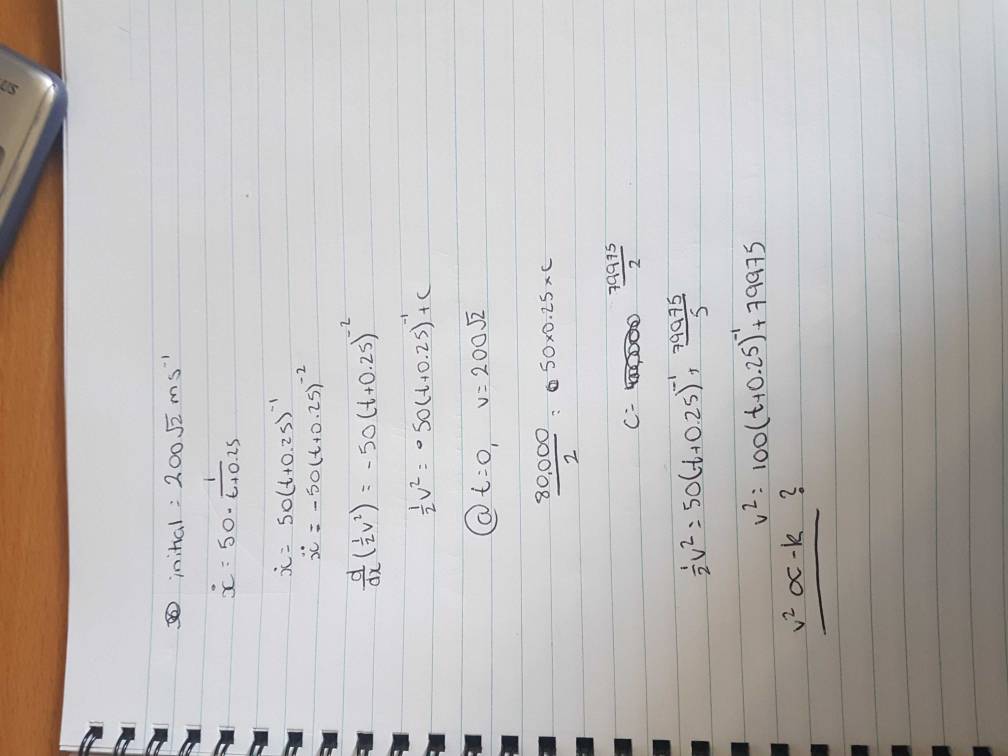 initial = 200√2 ms⁻¹
ẋ = 50 · 1/(t+0.25)
ẋ = 50(t+0.25)⁻¹
ẍ = -50(t+0.25)⁻²
d/dx(½v²) = -50(t+0.25)⁻²
½v² = 50(t+0.25)⁻¹ + c
@ t=0, v=200√2
80,000/2 = 50×0.25×c
C = 79975/2
½v² = 50(t+0.25)⁻¹ + 79975/5
v² = 100(t+0.25)⁻¹ + 79975
v² ∝ -k ?